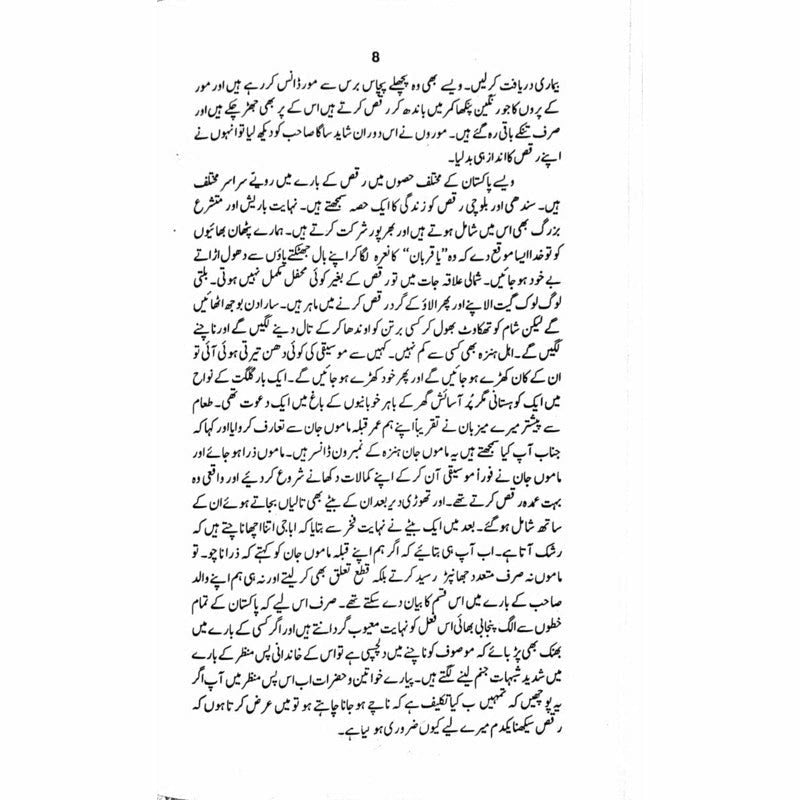 8
بیماری دریافت کرلیں۔ ویسے بھی وہ پچھلے پچاس برس سے مور ڈانس کر رہے ہیں اور مور
کے پروں کا جو رنگین پنکھا کمر میں باندھ کر رقص کرتے ہیں اس کے پر بھی جھڑ چکے ہیں اور
صرف تنکے باقی رہ گئے ہیں۔ موروں نے اس دوران شاید ساگا صاحب کو دیکھ لیا تو انہوں نے
اپنے رقص کا انداز ہی بدلیا۔
ویسے پاکستان کے مختلف حصوں میں رقص کے بارے میں رویے سراسر مختلف
ہیں۔ سندھی اور بلوچی رقص کو زندگی کا ایک حصہ سمجھتے ہیں۔ نہایت باریش اور متشرع
بزرگ بھی اس میں شامل ہوتے ہیں اور بھرپور شرکت کرتے ہیں۔ ہمارے پٹھان بھائیوں
کو تو خدا ایسا موقع دے کہ وہ ”یا قربان“ کا نعرہ لگا کر اپنے بال جھٹکتے پاؤں سے دھول اڑاتے
بے خود ہو جائیں۔ شمالی علاقہ جات میں تو رقص کے بغیر کوئی محفل مکمل نہیں ہوتی۔ بلتی
لوگ لوک گیت الاپنے اور پھر الاؤ کے گرد رقص کرنے میں ماہر ہیں۔ سارا دن بوجھ اٹھائیں
گے لیکن شام کو تھکاوٹ بھول کر کسی برتن کو اوندھا کر کے تال دینے لگیں گے اور ناچنے
لگیں گے۔ اہل ہنزہ بھی کسی سے کم نہیں۔ کہیں سے موسیقی کی کوئی دھن تیرتی ہوئی آئی تو
ان کے کان کھڑے ہو جائیں گے اور پھر خود کھڑے ہو جائیں گے۔ ایک بار گلگت کے نواح
میں ایک کوہستانی مگر پُر آسائش گھر کے باہر خوبانیوں کے باغ میں ایک دعوت تھی۔ طعام
سے پیشتر میرے میزبان نے تقریباً اپنے ہم عمر قبلہ ماموں جان سے تعارف کروایا اور کہا کہ
جناب آپ کیا سمجھتے ہیں یہ ماموں جان ہنزہ کے نمبر ون ڈانسر ہیں۔ ماموں ذرا ہو جائے اور
ماموں جان نے فوراً موسیقی آن کر کے اپنے کمالات دکھانے شروع کر دیئے اور واقعی وہ
بہت عمدہ رقص کرتے تھے۔ اور تھوڑی دیر بعد ان کے بیٹے بھی تالیاں بجاتے ہوئے ان کے
ساتھ شامل ہو گئے۔ بعد میں ایک بیٹے نے نہایت فخر سے بتایا کہ اباجی اتنا اچھا ناچتے ہیں کہ
رشک آتا ہے۔ اب آپ ہی بتائیے کہ اگر ہم اپنے قبلہ ماموں جان کو کہتے کہ ذرا ناچو۔ تو
ماموں نہ صرف متعدد جھانپڑ رسید کرتے بلکہ قطع تعلق بھی کر لیتے اور نہ ہی ہم اپنے والد
صاحب کے بارے میں اس قسم کا بیان دے سکتے تھے۔ صرف اس لیے کہ پاکستان کے تمام
خطوں سے الگ پنجابی بھائی اس فعل کو نہایت معیوب گردانتے ہیں اور اگر کسی کے بارے میں
بھنک بھی پڑ جائے کہ موصوف کو ناچنے میں دلچسپی ہے تو اس کے خاندانی پس منظر کے بارے
میں شدید شبہات جنم لینے لگتے ہیں۔ پیارے خواتین و حضرات اب اس پس منظر میں آپ اگر
یہ پوچھیں کہ تمہیں کیا تکلیف ہے کہ ناچے ہو جانا چاہتے ہو تو میں عرض کرتا ہوں کہ
رقص سیکھنا یکدم میرے لیے کیوں ضروری ہو گیا ہے۔